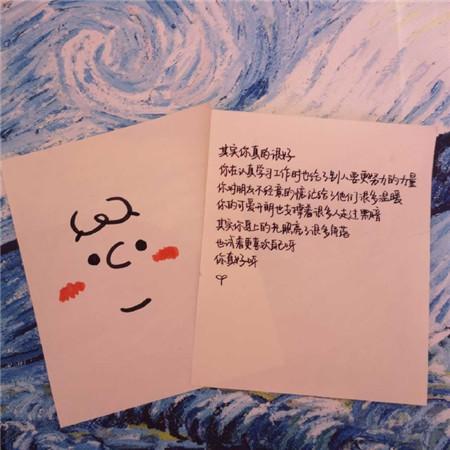 其实你真的很好
你在认真学习工作时也给了别人要更努力的力量
你对朋友不经意的惦记给了他们很多温暖
你的可爱开朗也支撑着很多人走过黑暗
其实你身上的光照亮了很多角落
也试着更喜欢自己呀
你真好呀